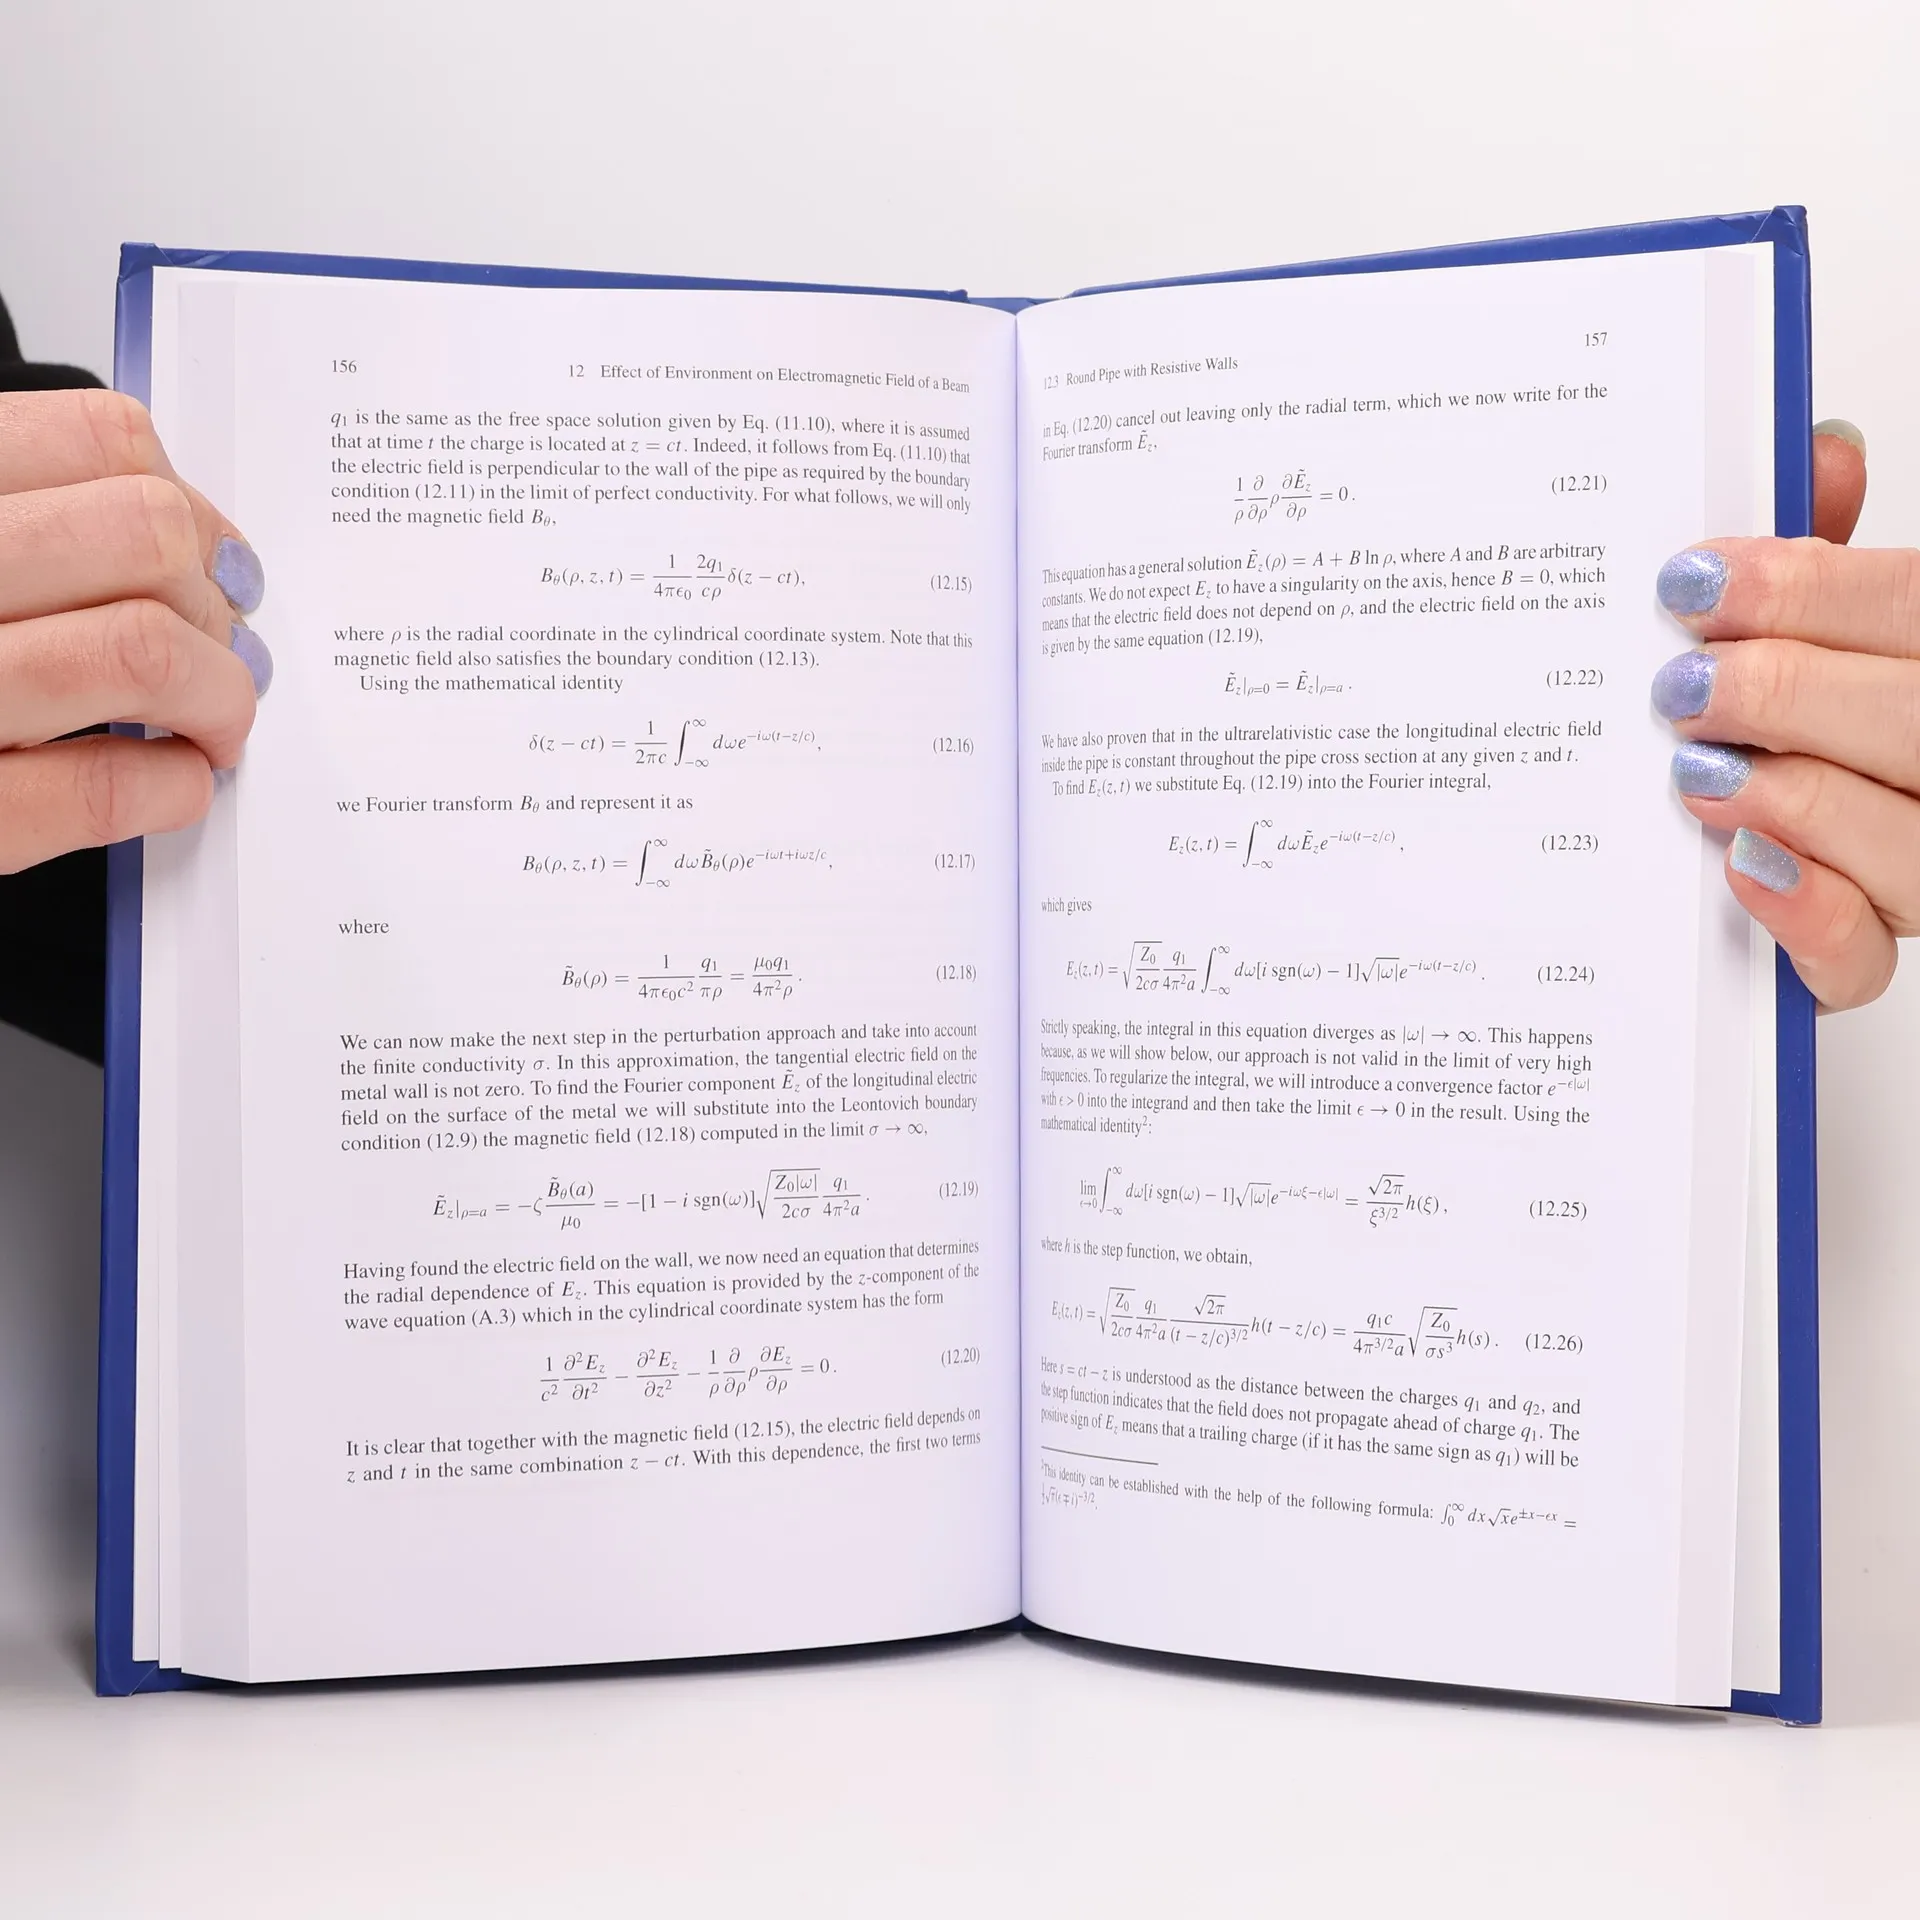 156
12 Effect of Environment on Electromagnetic Field of a Beam
q₁ is the same as the free space solution given by Eq. (11.10), where it is assumed
that at time t the charge is located at z = ct. Indeed, it follows from Eq. (11.10) that
the electric field is perpendicular to the wall of the pipe as required by the boundary
condition (12.11) in the limit of perfect conductivity. For what follows, we will only
need the magnetic field B_θ,
B_θ(ρ, z, t) = \frac{1}{4πϵ₀} \frac{2q₁}{cρ} δ(z − ct), (12.15)
where ρ is the radial coordinate in the cylindrical coordinate system. Note that this
magnetic field also satisfies the boundary condition (12.13).
Using the mathematical identity
δ(z − ct) = \frac{1}{2πc} ∫_{−∞}^{∞} dωe^{−iω(t−z/c)}, (12.16)
we Fourier transform B_θ and represent it as
B_θ(ρ, z, t) = ∫_{−∞}^{∞} dω\tilde{B}_θ(ρ)e^{−iωt+iωz/c}, (12.17)
where
\tilde{B}_θ(ρ) = \frac{1}{4πϵ₀c²} \frac{q₁}{πρ} = \frac{μ₀q₁}{4π²ρ}. (12.18)
We can now make the next step in the perturbation approach and take into account
the finite conductivity σ. In this approximation, the tangential electric field on the
metal wall is not zero. To find the Fourier component \tilde{E}_z of the longitudinal electric
field on the surface of the metal we will substitute into the Leontovich boundary
condition (12.9) the magnetic field (12.18) computed in the limit σ → ∞,
\tilde{E}_z|_{ρ=a} = −ζ\frac{\tilde{B}_θ(a)}{μ₀} = −[1 − i sgn(ω)]\sqrt{\frac{Z₀|ω|}{2cσ}} \frac{q₁}{4π²a}. (12.19)
Having found the electric field on the wall, we now need an equation that determines
the radial dependence of E_z. This equation is provided by the z-component of the
wave equation (A.3) which in the cylindrical coordinate system has the form
\frac{1}{c²}\frac{∂²E_z}{∂t²} − \frac{∂²E_z}{∂z²} − \frac{1}{ρ}\frac{∂}{∂ρ}ρ\frac{∂E_z}{∂ρ} = 0. (12.20)
It is clear that together with the magnetic field (12.15), the electric field depends on
z and t in the same combination z − ct. With this dependence, the first two terms
12.3 Round Pipe with Resistive Walls
157
in Eq. (12.20) cancel out leaving only the radial term, which we now write for the
Fourier transform \tilde{E}_z,
\frac{1}{ρ}\frac{∂}{∂ρ}ρ\frac{∂\tilde{E}_z}{∂ρ} = 0. (12.21)
This equation has a general solution \tilde{E}_z(ρ) = A + B ln ρ, where A and B are arbitrary
constants. We do not expect E_z to have a singularity on the axis, hence B = 0, which
means that the electric field does not depend on ρ, and the electric field on the axis
is given by the same equation (12.19),
\tilde{E}_z|_{ρ=0} = \tilde{E}_z|_{ρ=a}. (12.22)
We have also proven that in the ultrarelativistic case the longitudinal electric field
inside the pipe is constant throughout the pipe cross section at any given z and t.
To find E_z(z, t) we substitute Eq. (12.19) into the Fourier integral,
E_z(z, t) = ∫_{−∞}^{∞} dω\tilde{E}_ze^{−iω(t−z/c)}, (12.23)
which gives
E_z(z, t) = \sqrt{\frac{Z₀}{2cσ}} \frac{q₁}{4π²a} ∫_{−∞}^{∞} dω[i sgn(ω) − 1]\sqrt{|ω|}e^{−iω(t−z/c)}. (12.24)
Strictly speaking, the integral in this equation diverges as |ω| → ∞. This happens
because, as we will show below, our approach is not valid in the limit of very high
frequencies. To regularize the integral, we will introduce a convergence factor e^{−ϵ|ω|}
with ϵ > 0 into the integrand and then take the limit ϵ → 0 in the result. Using the
mathematical identity²:
\lim_{ϵ→0} ∫_{−∞}^{∞} dω[i sgn(ω) − 1]\sqrt{|ω|}e^{−iωξ−ϵ|ω|} = \frac{\sqrt{2π}}{ξ^{3/2}}h(ξ), (12.25)
where h is the step function, we obtain,
E_z(z, t) = \sqrt{\frac{Z₀}{2cσ}} \frac{q₁}{4π²a} \frac{\sqrt{2π}}{(t − z/c)^{3/2}}h(t − z/c) = \frac{q₁c}{4π^{3/2}a}\sqrt{\frac{Z₀}{σs³}}h(s). (12.26)
Here s = ct − z is understood as the distance between the charges q₁ and q₂, and
the step function indicates that the field does not propagate ahead of charge q₁. The
positive sign of E_z means that a trailing charge (if it has the same sign as q₁) will be
²This identity can be established with the help of the following formula: ∫₀^∞ dx\sqrt{x}e^{±x−ϵx} =
\frac{1}{2}\sqrt{π}(ϵ ∓ i)^{−3/2}.